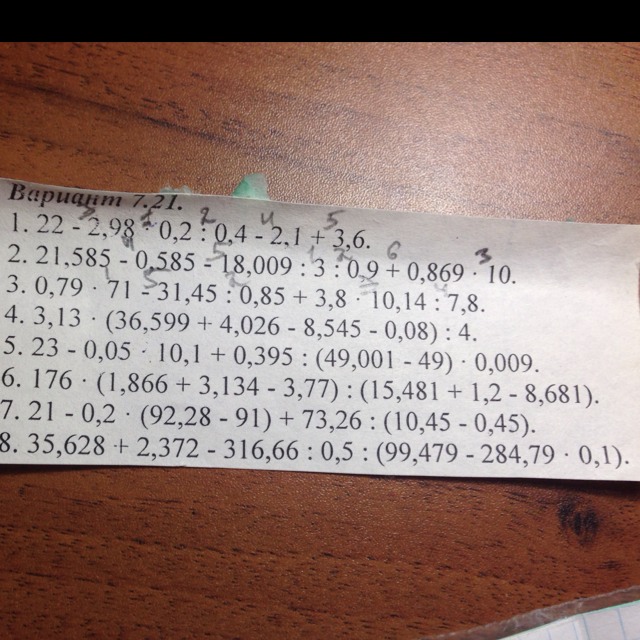 Вариант 7.21.
1. 22 - 2,98 · 0,2 : 0,4 - 2,1 + 3,6.
2. 21,585 - 0,585 - 18,009 : 3 : 0,9 + 0,869 · 10.
3. 0,79 · 71 - 31,45 : 0,85 + 3,8 · 10,14 : 7,8.
4. 3,13 · (36,599 + 4,026 - 8,545 - 0,08) : 4.
5. 23 - 0,05 · 10,1 + 0,395 : (49,001 - 49) · 0,009.
6. 176 · (1,866 + 3,134 - 3,77) : (15,481 + 1,2 - 8,681).
7. 21 - 0,2 · (92,28 - 91) + 73,26 : (10,45 - 0,45).
8. 35,628 + 2,372 - 316,66 : 0,5 : (99,479 - 284,79 · 0,1).